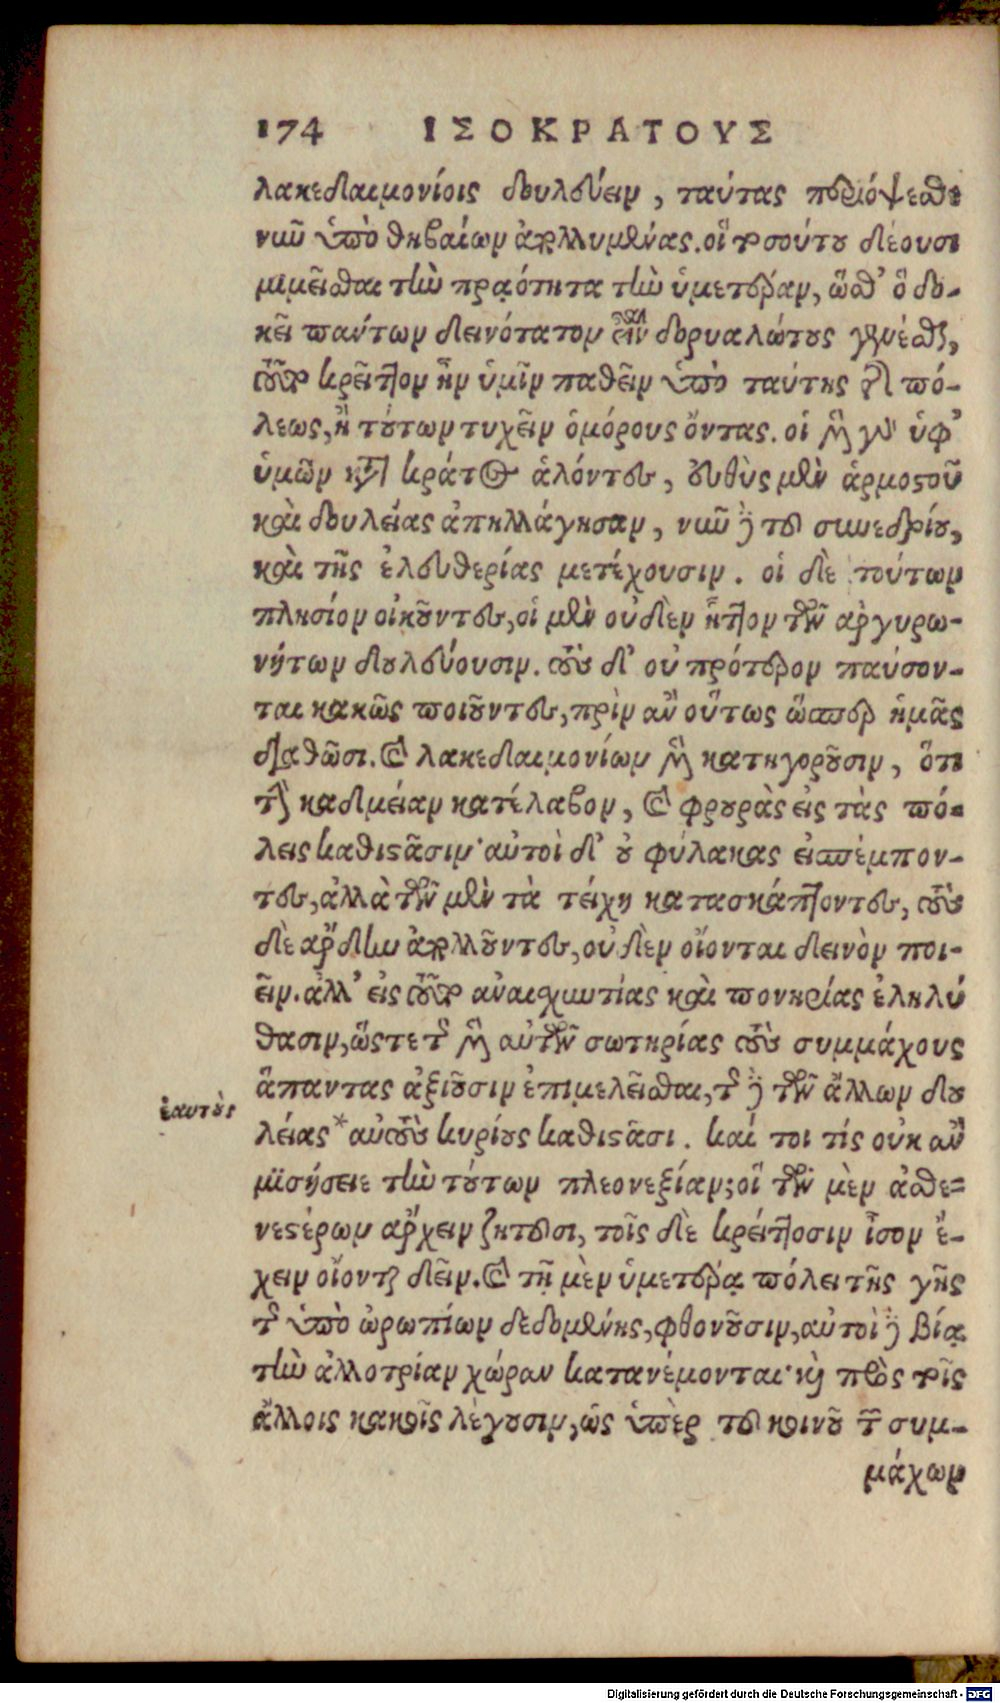 174 ΙΣΟΚΡΑΤΟΥΣ
λακεδαιμονίοις δουλεύειν, ταύτας περιόψεσθε
νῦν ὑπὸ θηβαίων ἀπολλυμένας. οἳ τοσούτου δέουσι
μιμεῖσθαι τὴν πραότητα τὴν ὑμετέραν, ὥσθ' ὃ δο-
κεῖ πάντων δεινότατον εἶναι δορυαλώτους γενέσθαι,
τοῦτο κρεῖττον ἦν ὑμῖν παθεῖν ὑπὸ ταύτης τῆς πό-
λεως, ἢ τούτων τυχεῖν ὁμόρους ὄντας. οἱ μὲν γὰρ ὑφ'
ὑμῶν κατὰ κράτος ἁλόντες, εὐθὺς μὲν ἁρμοστοῦ
καὶ δουλείας ἀπηλλάγησαν, νῦν δὲ τοῦ συνεδρίου,
καὶ τῆς ἐλευθερίας μετέχουσιν. οἱ δὲ τούτων
πλησίον οἰκοῦντες, οἱ μὲν οὐδὲν ἧττον τῶν ἀργυρω-
νήτων δουλεύουσιν. τοὺς δ' οὐ πρότερον παύσον-
ται κακῶς ποιοῦντες, πρὶν ἂν οὕτως ὥσπερ ἡμᾶς
διαθῶσι. καὶ λακεδαιμονίων μὲν κατηγοροῦσιν, ὅτι
τὴν καδμείαν κατέλαβον, καὶ φρουρὰς εἰς τὰς πό-
λεις καθιστᾶσιν· αὐτοὶ δ' οὐ φύλακας εἰσπέμπον-
τες, ἀλλὰ τῶν μὲν τὰ τείχη κατασκάπτοντες, τοὺς
δὲ ἄρδην ἀπολλοῦντες, οὐδὲν οἴονται δεινὸν ποι-
εῖν. ἀλλ' εἰς τοῦτο ἀναισχυντίας καὶ πονηρίας ἐληλύ
θασιν, ὥστε τῆς μὲν αὐτῶν σωτηρίας τοὺς συμμάχους
ἅπαντας ἀξιοῦσιν ἐπιμελεῖσθαι, τῆς δὲ τῶν ἄλλων δου
λείας * αὐτοὺς κυρίους καθιστᾶσι. καί τοι τίς οὐκ ἂν
μισήσειε τὴν τούτων πλεονεξίαν; οἳ τῶν μὲν ἀσθε-
νεστέρων ἄρχειν ζητοῦσι, τοῖς δὲ κρείττοσιν ἴσον ἔ-
χειν οἴονται δεῖν. καὶ τῇ μὲν ὑμετέρᾳ πόλει τῆς γῆς
τῆς ὑπὸ ὠρωπίων δεδομένης, φθονοῦσιν, αὐτοὶ δὲ βίᾳ
τὴν ἀλλοτρίαν χώραν κατανέμονται· καὶ πρὸς τοῖς
ἄλλοις κακοῖς λέγουσιν, ὡς ὑπὲρ τοῦ κοινοῦ τῶν συμ-
μάχων
ἑαυτοὺς
Digitalisierung gefördert durch die Deutsche Forschungsgemeinschaft - DFG